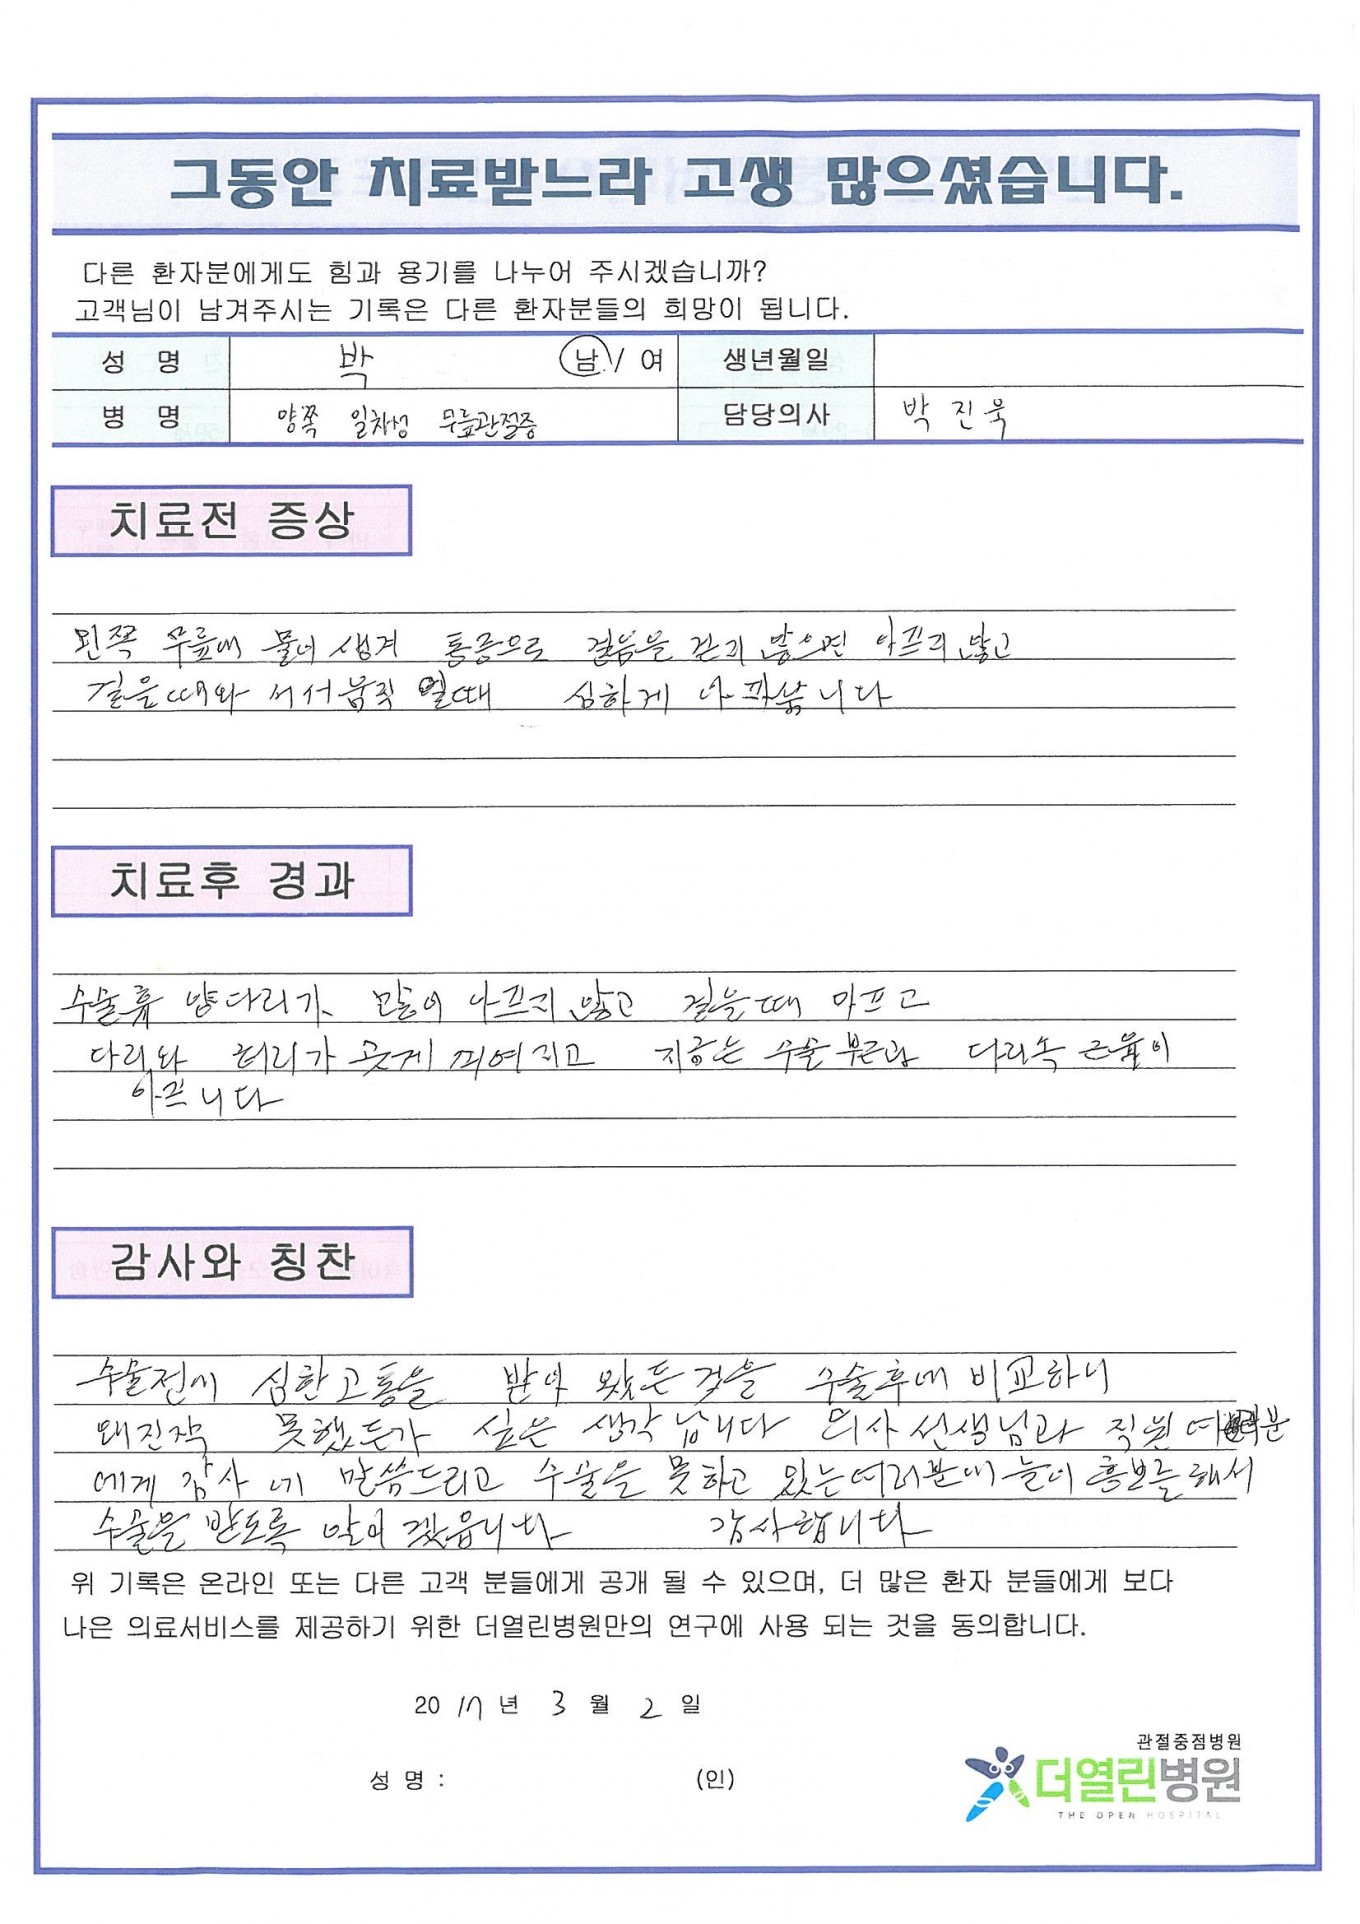 그동안 치료받느라 고생 많으셨습니다.
다른 환자분에게도 힘과 용기를 나누어 주시겠습니까?
고객님이 남겨주시는 기록은 다른 환자분들의 희망이 됩니다.
성 명 박 남 / 여 생년월일
병 명 양쪽 일차성 무릎관절증 담당의사 박진욱
치료전 증상
왼쪽 무릎에 물이 생겨 통증으로 걸음을 걷지 않으면 아프지 않고
걸을때와 서서움직 일때 심하게 아팠습니다
치료후 경과
수술후 양다리가 많이 아프지 않고 걸을때 아프고
다리와 허리가 곳게 펴여지고 지금은 수술 부근과 다리속 근육이
아프니다
감사와 칭찬
수술전에 심한고통을 받아 왔든것을 수술후에 비교하니
왜진작 못했든가 싶은 생각 납니다 의사선생님과 직원여러분
에게 감사에 말씀드리고 수술을 못하고 있는여러분에 홍보를해서
수술을 받도록 하겠읍니다 감사합니다
위 기록은 온라인 또는 다른 고객 분들에게 공개 될 수 있으며, 더 많은 환자 분들에게 보다
나은 의료서비스를 제공하기 위한 더열린병원만의 연구에 사용 되는 것을 동의합니다.
2017년 3월 2일
관절중점병원
성 명 : (인)
더열린병원
THE OPEN HOSPITAL